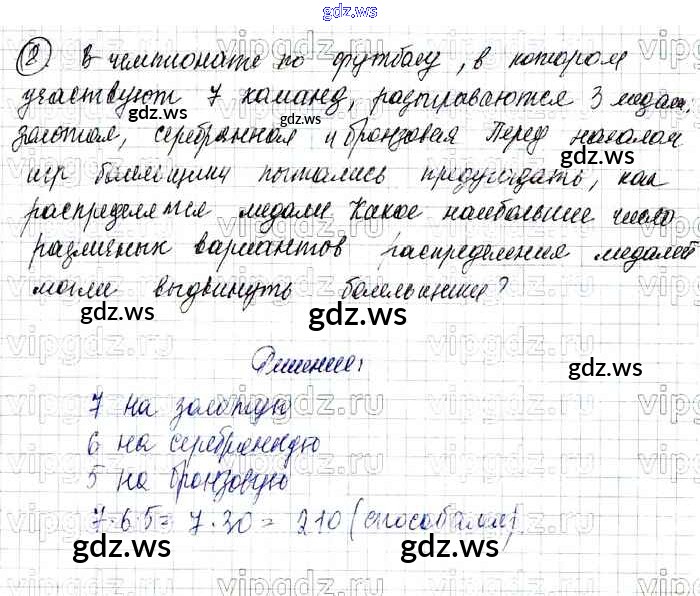 gdz.ws
② В чемпионате по футболу, в котором
участвуют 7 команд, разыгрываются 3 медали,
золотая, серебряная и бронзовая Перед началом
игр болельщики пытались предугадать, как
распределятся медали. Какое наибольшее число
различных вариантов распределения медалей
могли выдвинуть болельщики?
Решение:
7 на золотую
6 на серебрянную
5 на бронзовую
7·6·5= 7·30 = 210 (способами)